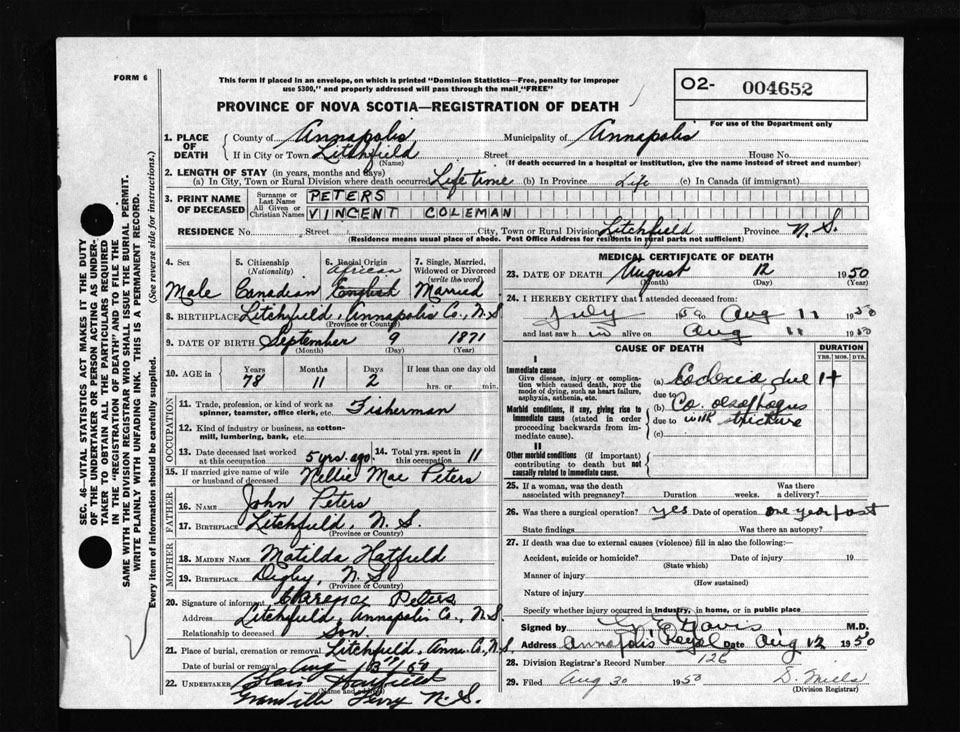 FORM 6
This form if placed in an envelope, on which is printed "Dominion Statistics—Free, penalty for improper
use $300," and properly addressed will pass through the mail "FREE"
O2- 004652
PROVINCE OF NOVA SCOTIA—REGISTRATION OF DEATH
For use of the Department only
1. PLACE OF DEATH { County of Annapolis Municipality of Annapolis
If in City or Town Litchfield Street House No.
(Name) (If death occurred in a hospital or institution, give the name instead of street and number)
2. LENGTH OF STAY (in years, months and days)
(a) In City, Town or Rural Division where death occurred Lifetime (b) In Province Life (c) In Canada (if immigrant)
3. PRINT NAME OF DECEASED { Surname or Last Name PETERS
All Given or Christian Names VINCENT COLEMAN
RESIDENCE No. Street City, Town or Rural Division Litchfield Province N.S.
(Residence means usual place of abode. Post Office Address for residents in rural parts not sufficient)
4. Sex 5. Citizenship (Nationality) 6. Racial Origin 7. Single, Married, Widowed or Divorced (write the word)
African
Male Canadian English Married
8. BIRTHPLACE Litchfield, Annapolis Co., N.S.
(Province or Country)
9. DATE OF BIRTH September 9 1871
(Month) (Day) (Year)
10. AGE in Years Months Days If less than one day
78 11 2 hrs. or min.
OCCUPATION
11. Trade, profession, or kind of work as spinner, teamster, office clerk, etc. Fisherman
12. Kind of industry or business, as cotton-mill, lumbering, bank, etc.
13. Date deceased last worked at this occupation 5 yrs. ago 14. Total yrs. spent in this occupation 11
15. If married give name of wife or husband of deceased Nellie Mae Peters
FATHER
16. Name John Peters
17. Birthplace Litchfield, N.S.
(Province or Country)
MOTHER
18. Maiden Name Matilda Hatfield
19. Birthplace Digby, N.S.
(Province or Country)
20. Signature of informant Clarence Peters
Address Litchfield, Annapolis Co., N.S.
Relationship to deceased Son.
21. Place of burial, cremation or removal Litchfield, Anna. Co., N.S.
Date of burial or removal Aug
22. Undertaker Blair Hatfield
(Name and Address)
Granville Ferry N.S.
MEDICAL CERTIFICATE OF DEATH
23. DATE OF DEATH August 12 1950
(Month) (Day) (Year)
24. I HEREBY CERTIFY that I attended deceased from:
July 1950 Aug 11 1950
and last saw h im alive on Aug 11 1950
CAUSE OF DEATH DURATION
YRS. MOS. DYS.
I
Immediate cause
Give disease, injury or complication which caused death, not the mode of dying, such as heart failure, asphyxia, asthenia, etc.
(a) due 1+
due to
Morbid conditions, if any, giving rise to immediate cause (stated in order proceeding backwards from immediate cause).
(b) Ca. oesophagus
due to with stricture
(c)
II
Other morbid conditions (if important) contributing to death but not causally related to immediate cause.
25. If a woman, was the death associated with pregnancy? Duration weeks. Was there a delivery?
26. Was there a surgical operation? yes Date of operation one year past
State findings Was there an autopsy?
27. If death was due to external causes (violence) fill in also the following:—
Accident, suicide or homicide? Date of injury 19
(State which)
Manner of injury
(How sustained)
Nature of injury
Specify whether injury occurred in industry, in home, or in public place
Signed by Davis M.D.
Address Annapolis Royal Date Aug. 12 1950
28. Division Registrar's Record Number 126
29. Filed Aug 30 1950 D. Mills
(Division Registrar)
SEC. 46—VITAL STATISTICS ACT MAKES IT THE DUTY
OF THE UNDERTAKER OR PERSON ACTING AS UNDER-
TAKER TO OBTAIN ALL THE PARTICULARS REQUIRED
IN THE "REGISTRATION OF DEATH" AND TO FILE THE
SAME WITH THE DIVISION REGISTRAR WHO SHALL ISSUE THE BURIAL PERMIT.
WRITE PLAINLY WITH UNFADING INK. THIS IS A PERMANENT RECORD.
Every item of information should be carefully supplied. (See reverse side for instructions.)